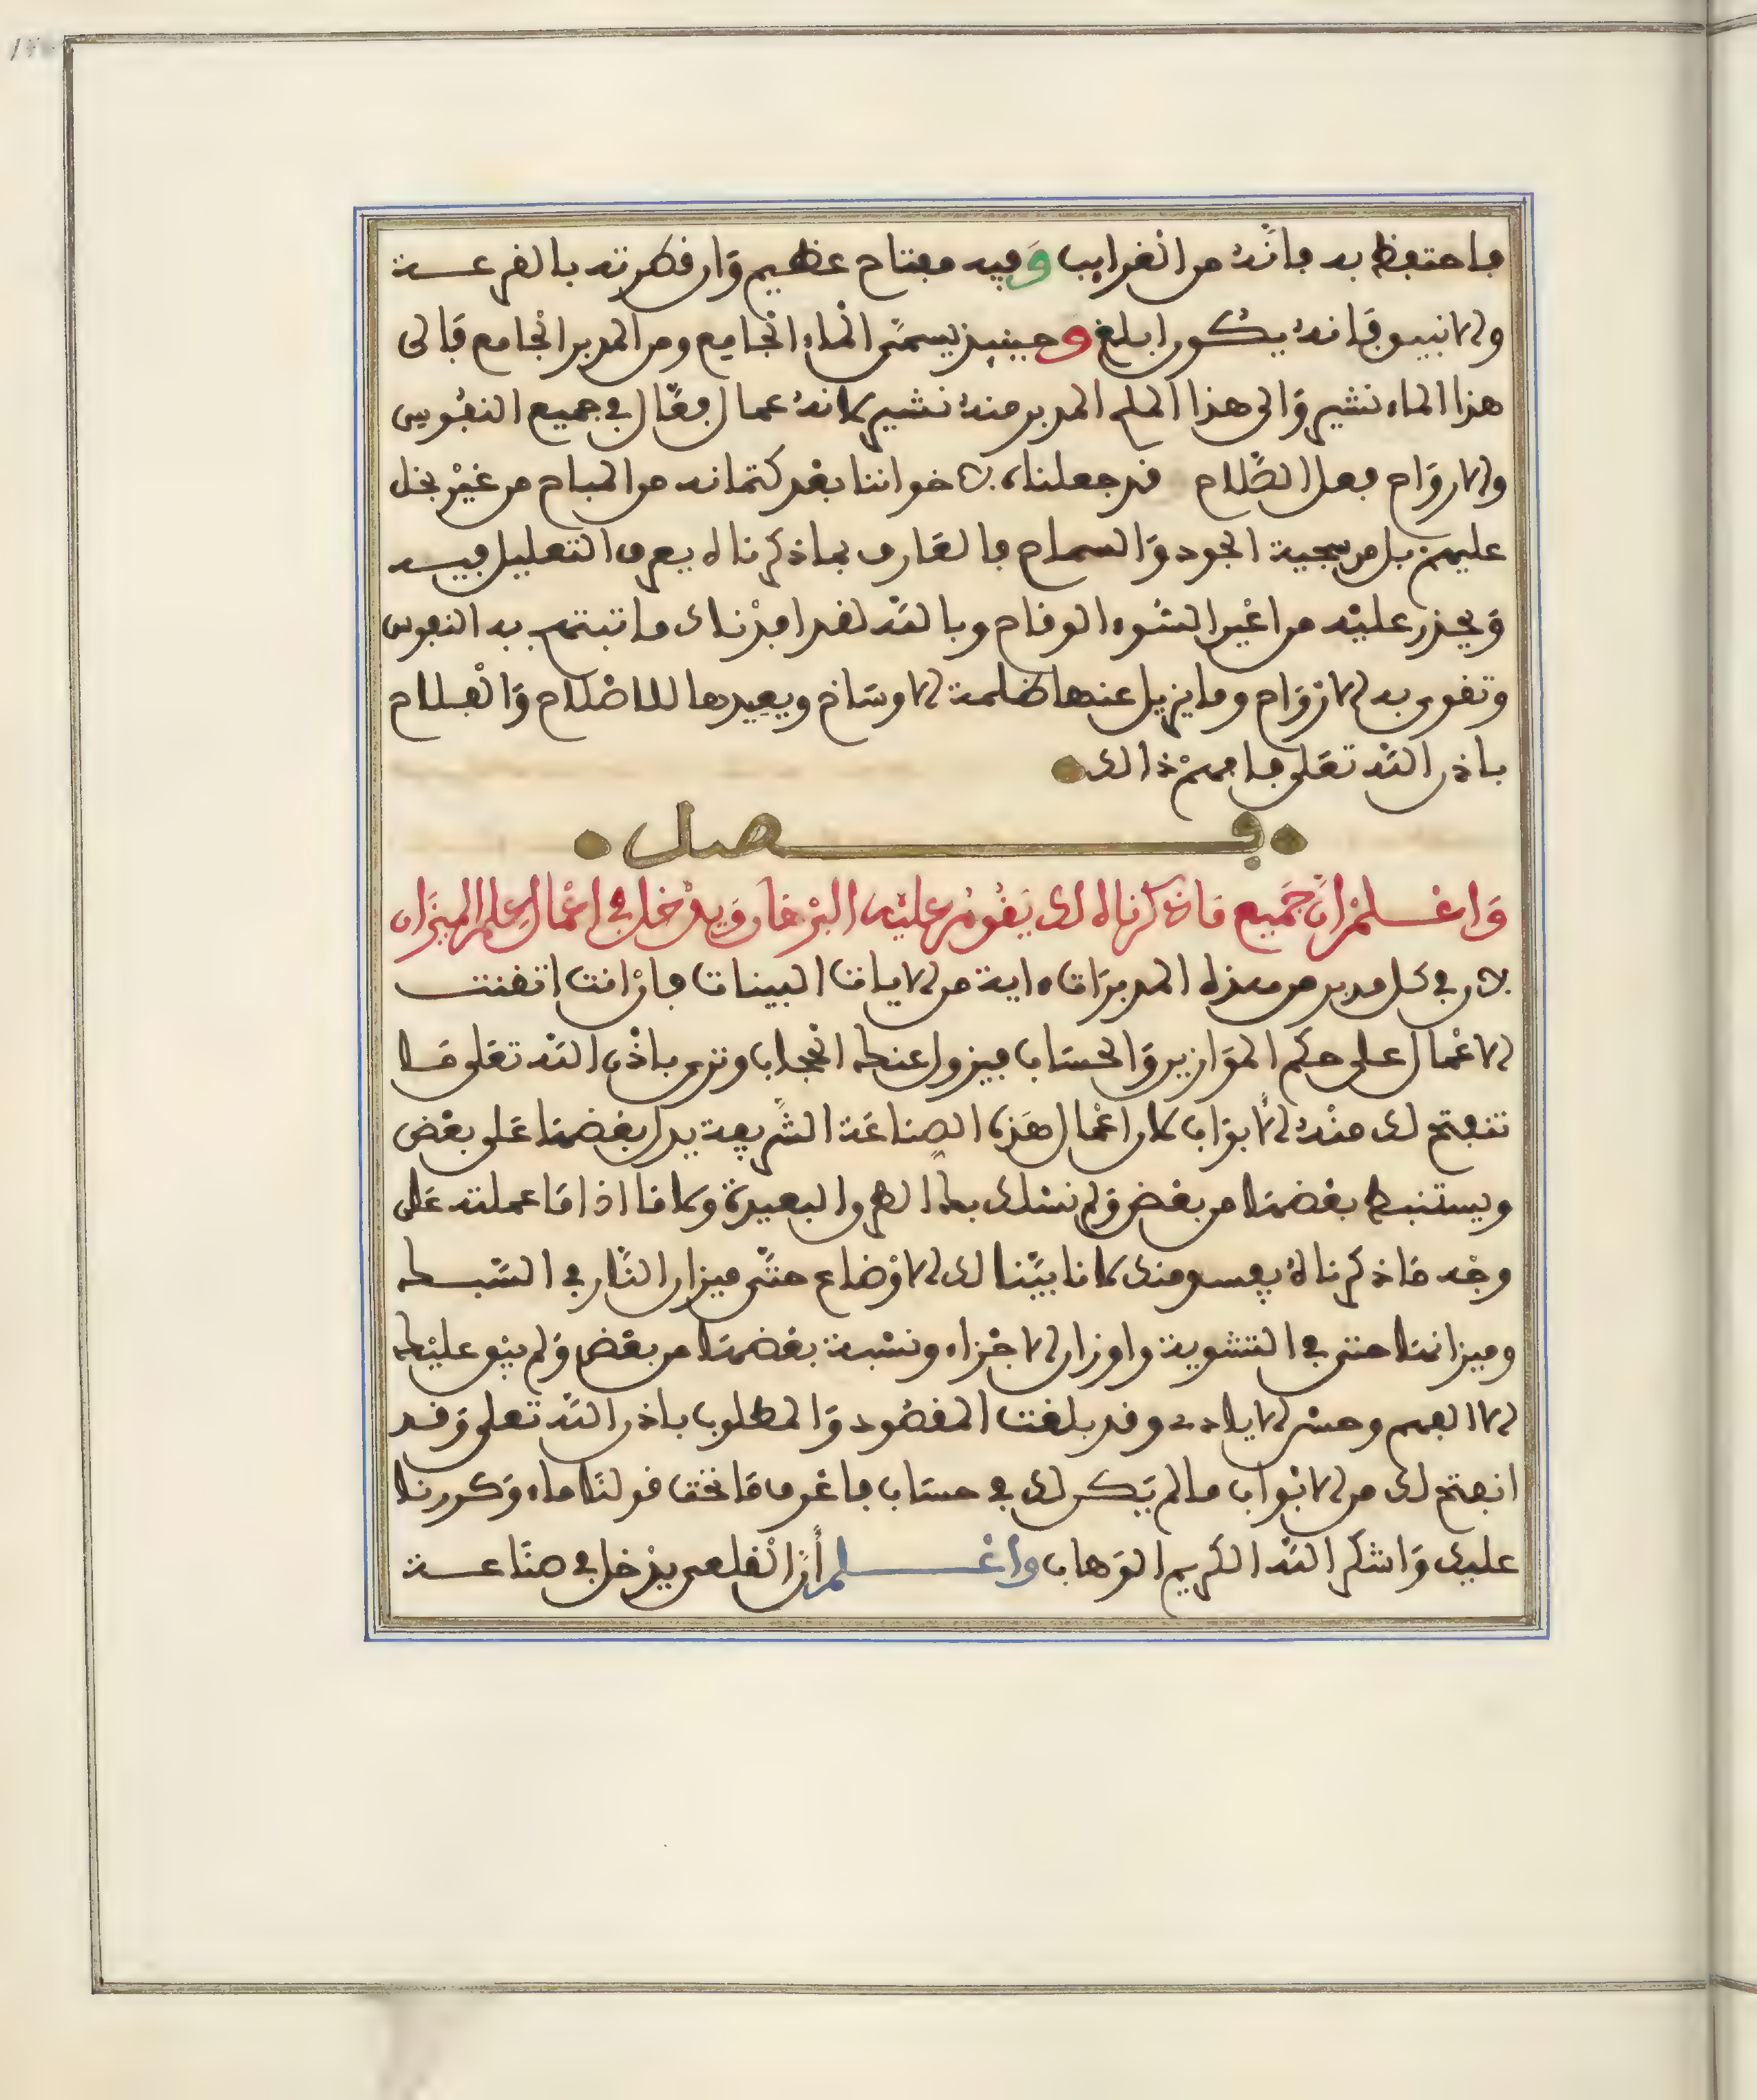 فاحتفظ به فانّه من الغرايب وَفيه مفتاح عظيم وَان فطرته بالقرعـة
والانبيق فَانه يكون ابلغ وحينيذ يسمّى الْماء الْجامع ومن المدبر الْجامع فَالى
هذا الماء نشير وَالى هذا الملح المدبر منه نشير لانه عمال فعّال في جميع النفُوس
والاروَاح فعل الصّلاح قد جعلناه لاخواننا بعْد كتمانه من المباح من غيْر بخل
عليهم بل من سجية الجود وَالسماح فالعَارف بماذكرناه يعرف التعليل فيـه
وَيحذر عليْه من اعْين السُّوء الوقاح وبالله لقد افدْناك ما تبتهج به النفوس
وتقوى به الارْوَاح وما يزيل عنها ظلمة الاوسَاخ ويعِيدها للاصْلاح وَالْفلاح
باذن الله تعَلى فافهمْ ذالك
فـــصل
وَاعْــلمْ انّ جَميع مَاذكرناه لك يَقُومُ عليْه البرْهَان وَيدْخل في اعْمال علم الميزَان
لان في كل مدبر من هذه المدبرَات ءاية من الايات البينات فانْ انت اتقنت
الاعْمال على حكم الموَازين وَالحسَاب فيزول عنك الْحجاب وترى باذْن الله تعَلى مَـا
تنفتح لك منْه الأبوَاب لان اعْمال هَذه الصناعَة الشّريفة يدل بعْضها عَلى بعْض
ويستنبط بعْضها من بعْض وَلم نسْلك بك الطرق البعيدة ولا ما اذا مَا عملته عَلى
وجْه مَاذكرناهُ يفسد منك لانا بيَّنا لك الاوْضاع حتّى ميزان النَّار في السّبـك
وميزانها حتى في التشوية واوزان الاجْزاء ونسْبة بعْضها من بعْض وَلم يبْق عليْك
الا الفهم وحسْن الايلاف وقد بلغت المقصُود وَالمطلوب باذن الله تعلى وَقـد
انفتح لك من الابْواب مالم يَكن لك في حسَاب فاعْرف مَا تحْت قولنا ماء وَكررنا
عليك وَاشكر الله الكريم الوَهاب واعْــلم أنّ الْقلعي يدْخل في صنَاعـة